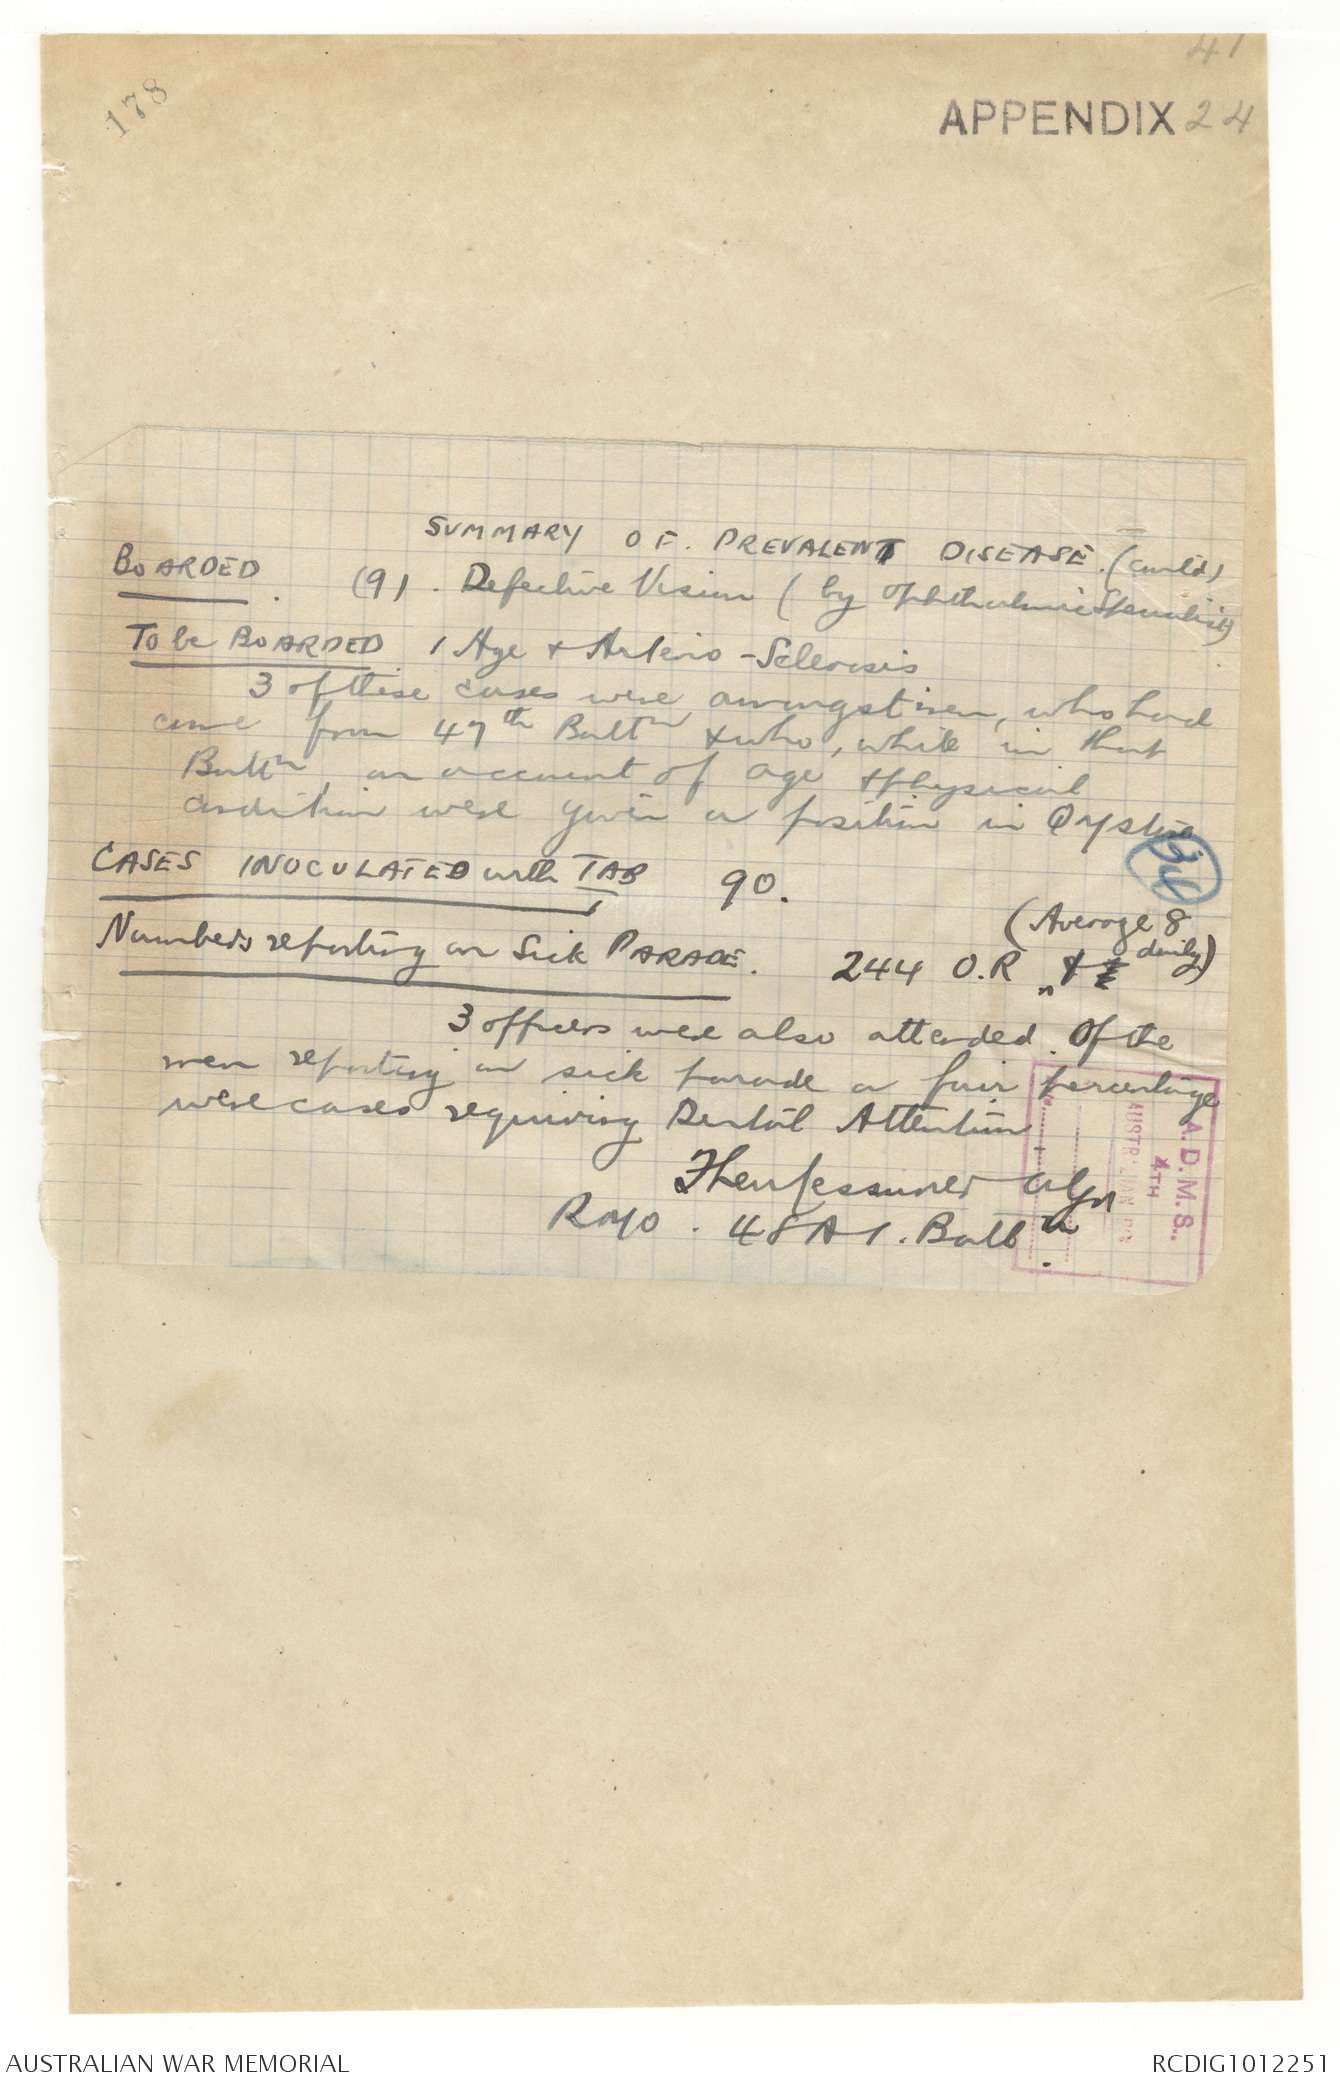 41
178
APPENDIX 24
SUMMARY OF. PREVALENT DISEASE. (contd)
BOARDED. (9). Defective Vision (by Ophthalmic Specialist)
To be BOARDED 1 Age & Arterio-Sclerosis
3 of these cases were amongst men, who had
come from 47th Battn & who, while in that
Battn, on account of age & physical
condition were given a position in
CASES INOCULATED with TAB 90.
(Average 8
daily)
Numbers reporting on Sick PARADE. 244 O.R
3 officers were also attended. Of the
men reporting on sick parade a fair percentage
were cases requiring Dental Attention
RMO. 48 A I. Battn.
A.D.M.S.
4TH
AUSTRALIAN DIV
AUSTRALIAN WAR MEMORIAL
RCDIG1012251